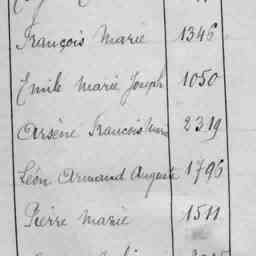 François Marie 1346
Emile Marie Joseph 1050
Arsène François 2319
Léon Armand Auguste 1796
Pierre Marie 1511